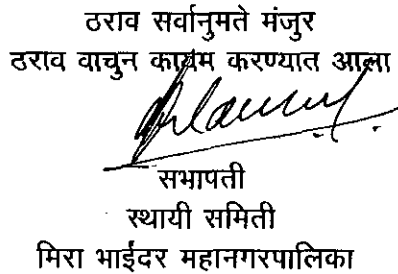 ठराव सर्वानुमते मंजुर
ठराव वाचुन कायम करण्यात आला
सभापती
स्थायी समिती
मिरा भाईंदर महानगरपालिका